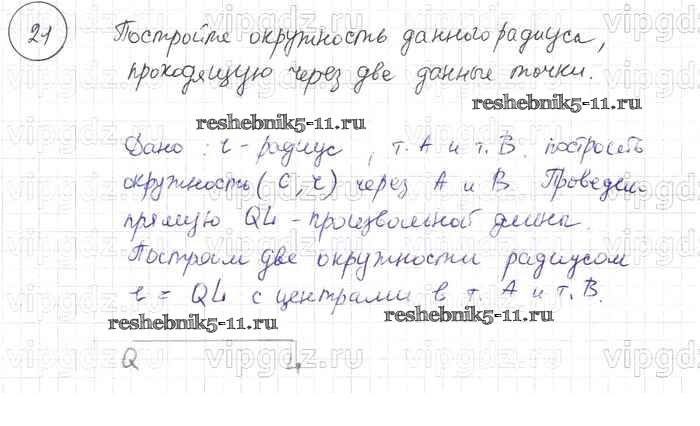 21
Постройте окружность данного радиуса,
проходящую через две данные точки.
reshebnik5-11.ru
reshebnik5-11.ru
Дано : r - радиус , т. А и т. В. построеть
окружность (С, r) через А и В. Проведем
прямую QL - произвольной длины.
Построим две окружности радиусом
r = QL с центрами в т. А и т. В.
reshebnik5-11.ru
reshebnik5-11.ru
Q L